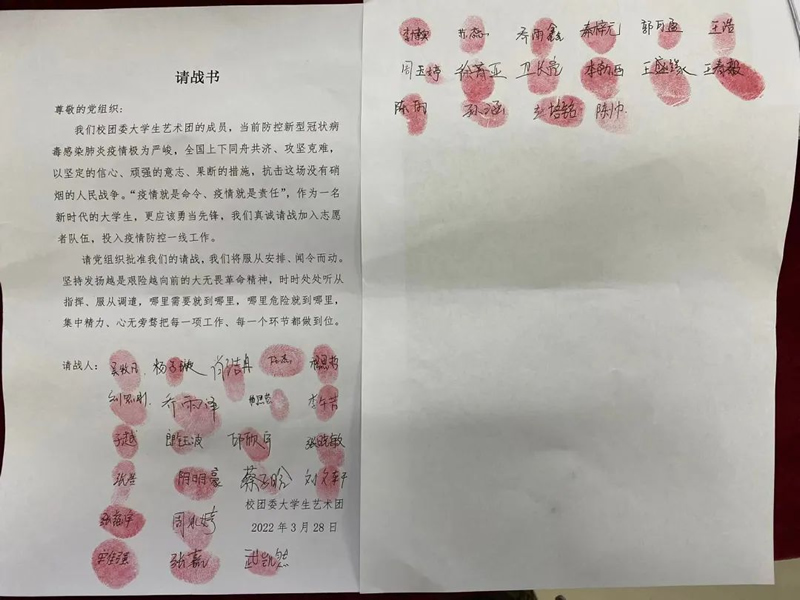 请战书
尊敬的党组织：
我们校团委大学生艺术团的成员，当前防控新型冠状病
毒感染肺炎疫情极为严峻，全国上下同舟共济、攻坚克难，
以坚定的信心、顽强的意志、果断的措施，抗击这场没有硝
烟的人民战争。“疫情就是命令、疫情就是责任”，作为一名
新时代的大学生，更应该勇当先锋，我们真诚请战加入志愿
者队伍，投入疫情防控一线工作。
请党组织批准我们的请战，我们将服从安排、闻令而动。
坚持发扬越是艰险越向前的大无畏革命精神，时时处处听从
指挥、服从调遣，哪里需要就到哪里，哪里危险就到哪里，
集中精力、心无旁骛把每一项工作、每一个环节都做到位。
请战人：
乔雨泽
张晓敏
阴明豪
校团委大学生艺术团
2022年3月28日
张嘉 武凯
乔雨鑫 王浩
王春毅
陈雨 孙涵 陈帅